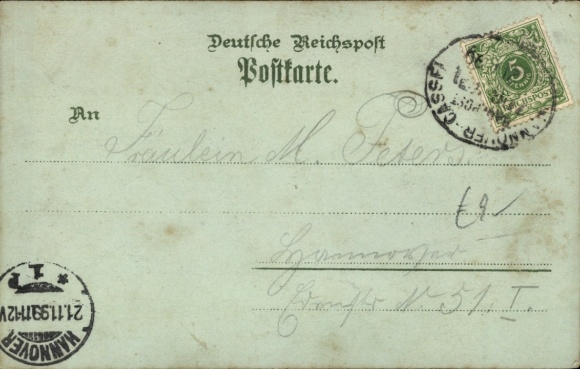 Deutsche Reichspost
Postkarte.
HANNOVER-CASSEL
5
An
Fräulein M. Peters
Hannover
N 51. I.
HANNOVER
21.11.99.11-12V
* 1 P